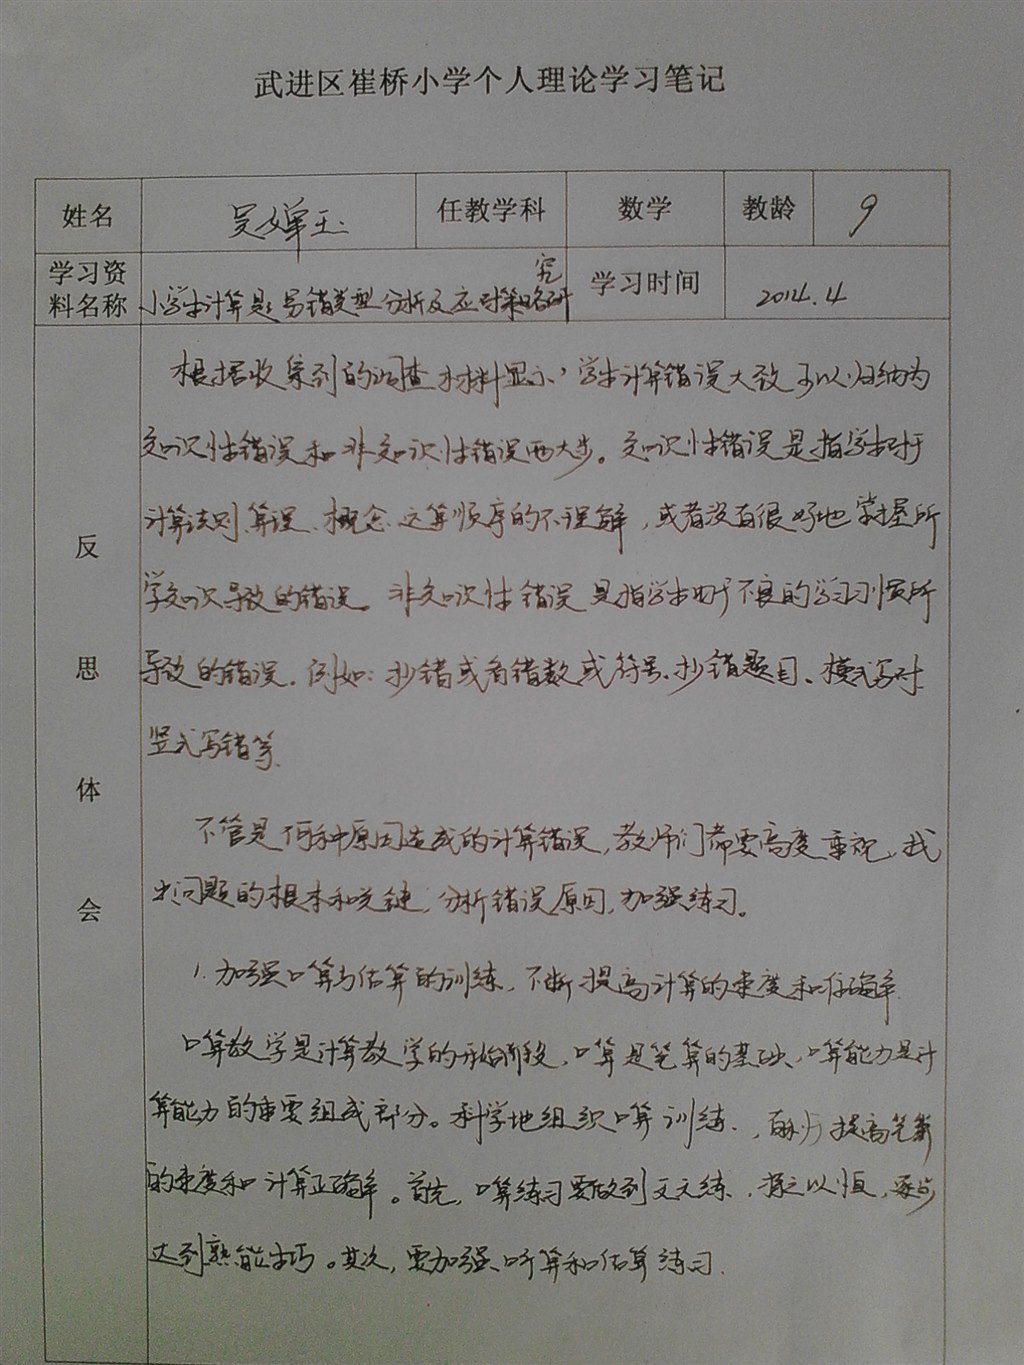 武进区崔桥小学个人理论学习笔记
姓名 任教学科 数学 教龄 9
学习资料名称 小学生计算题易错类型分析及应对策略研究 学习时间 2014.4
反思体会
根据收集到的调查材料显示,学生计算错误大致可以归纳为
知识性错误和非知识性错误两大步。知识性错误是指学生对于
计算法则、算误、概念、运算顺序的不理解,或者没有很好地掌握所
学知识导致的错误。非知识性错误是指学生由于不良的学习习惯所
导致的错误。例如:抄错或看错数或符号、抄错题目、横式写对
竖式写错等。
不管是何种原因造成的计算错误,教师们都要高度重视,找
出问题的根本和关键,分析错误原因,加强练习。
1.加强口算与估算的训练,不断提高计算的速度和准确率
口算教学是计算教学的开始阶段,口算是笔算的基础、口算能力是计
算能力的重要组成部分。科学地组织口算训练,有助于提高笔算
的速度和计算正确率。首先,口算练习要做到天天练,持之以恒,逐步
达到熟能生巧。其次,要加强听算和估算练习.